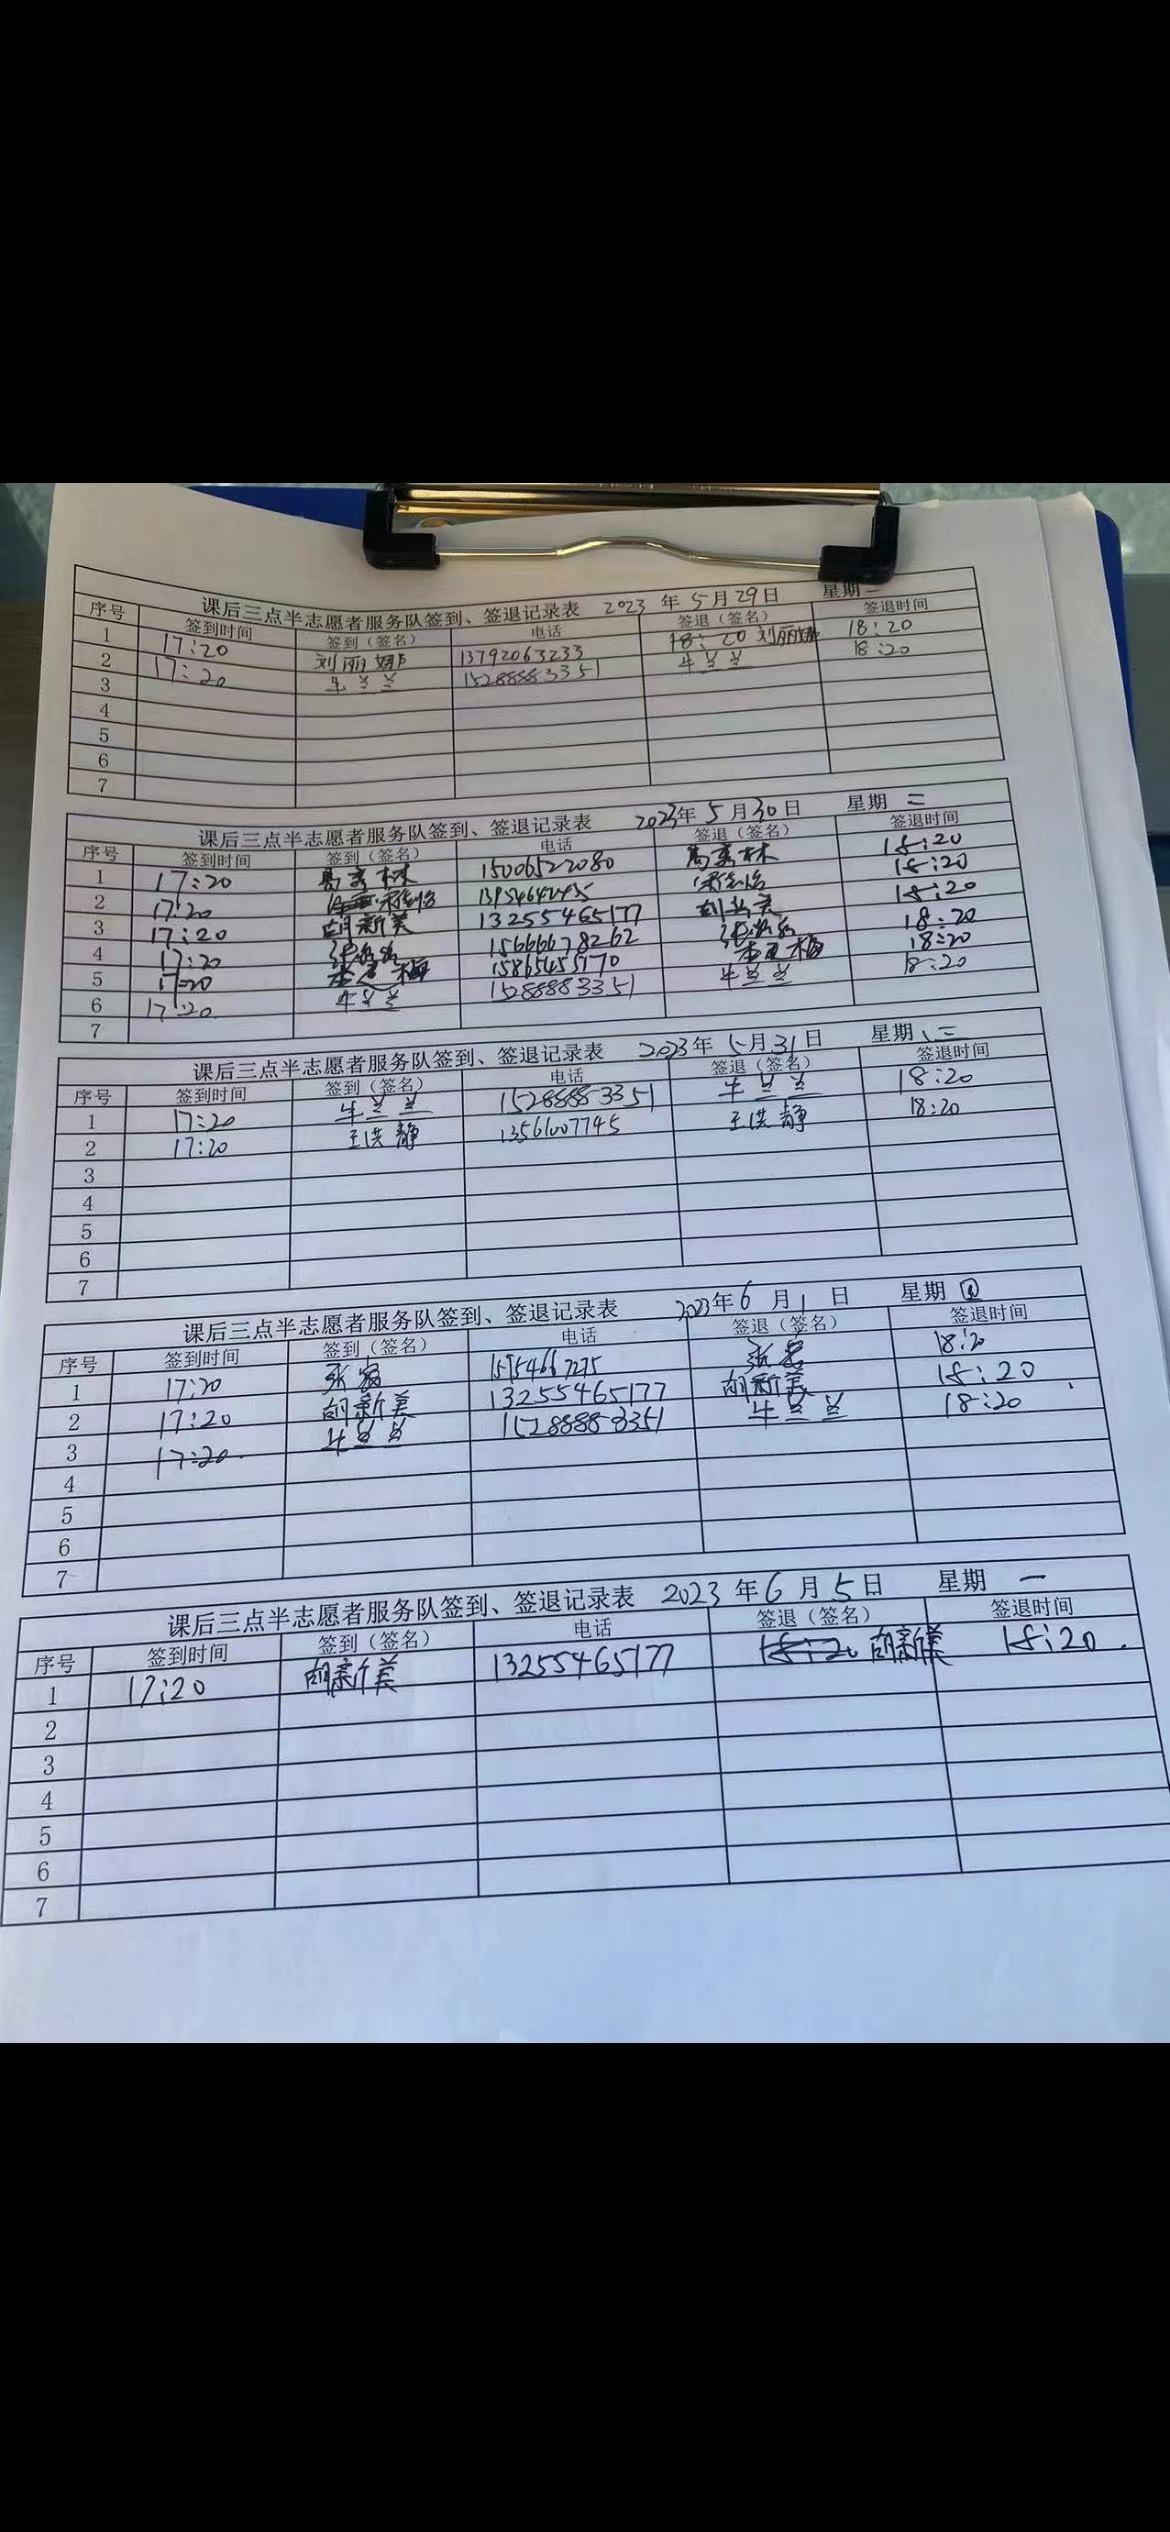 课后三点半志愿者服务队签到、签退记录表 2023 年 5 月 29 日 星期
序号 签到时间 签到（签名） 电话 签退（签名） 签退时间
1 17:20 刘丽娜 13792063233 18:20 刘丽娜 18:20
2 17:20 牛兰兰 15288883351 牛兰兰 18:20
3
4
5
6
7
课后三点半志愿者服务队签到、签退记录表 2023年 5 月 30 日 星期 二
序号 签到时间 签到（签名） 电话 签退（签名） 签退时间
1 17:20 15006522080 18:20
2 17:20 18:20
3 17:20 胡新美 13255465177 胡新美 18:20
4 17:20 15666678262 18:20
5 17:20 18:20
6 17:20 牛兰兰 15288883351 牛兰兰 18:20
7
课后三点半志愿者服务队签到、签退记录表 2023年 5月 31 日 星期 三
序号 签到时间 签到（签名） 电话 签退（签名） 签退时间
1 17:20 牛兰兰 15288883351 牛兰兰 18:20
2 17:20 王洪静 13561007745 王洪静 18:20
3
4
5
6
7
课后三点半志愿者服务队签到、签退记录表 2023年 6 月 1 日 星期 四
序号 签到时间 签到（签名） 电话 签退（签名） 签退时间
1 17:20 18:20
2 17:20 胡新美 13255465177 胡新美 18:20
3 17:20 牛兰兰 15288883351 牛兰兰 18:20
4
5
6
7
课后三点半志愿者服务队签到、签退记录表 2023 年 6 月 5 日 星期 一
序号 签到时间 签到（签名） 电话 签退（签名） 签退时间
1 17:20 胡新美 13255465177 18:20 胡新美 18:20
2
3
4
5
6
7